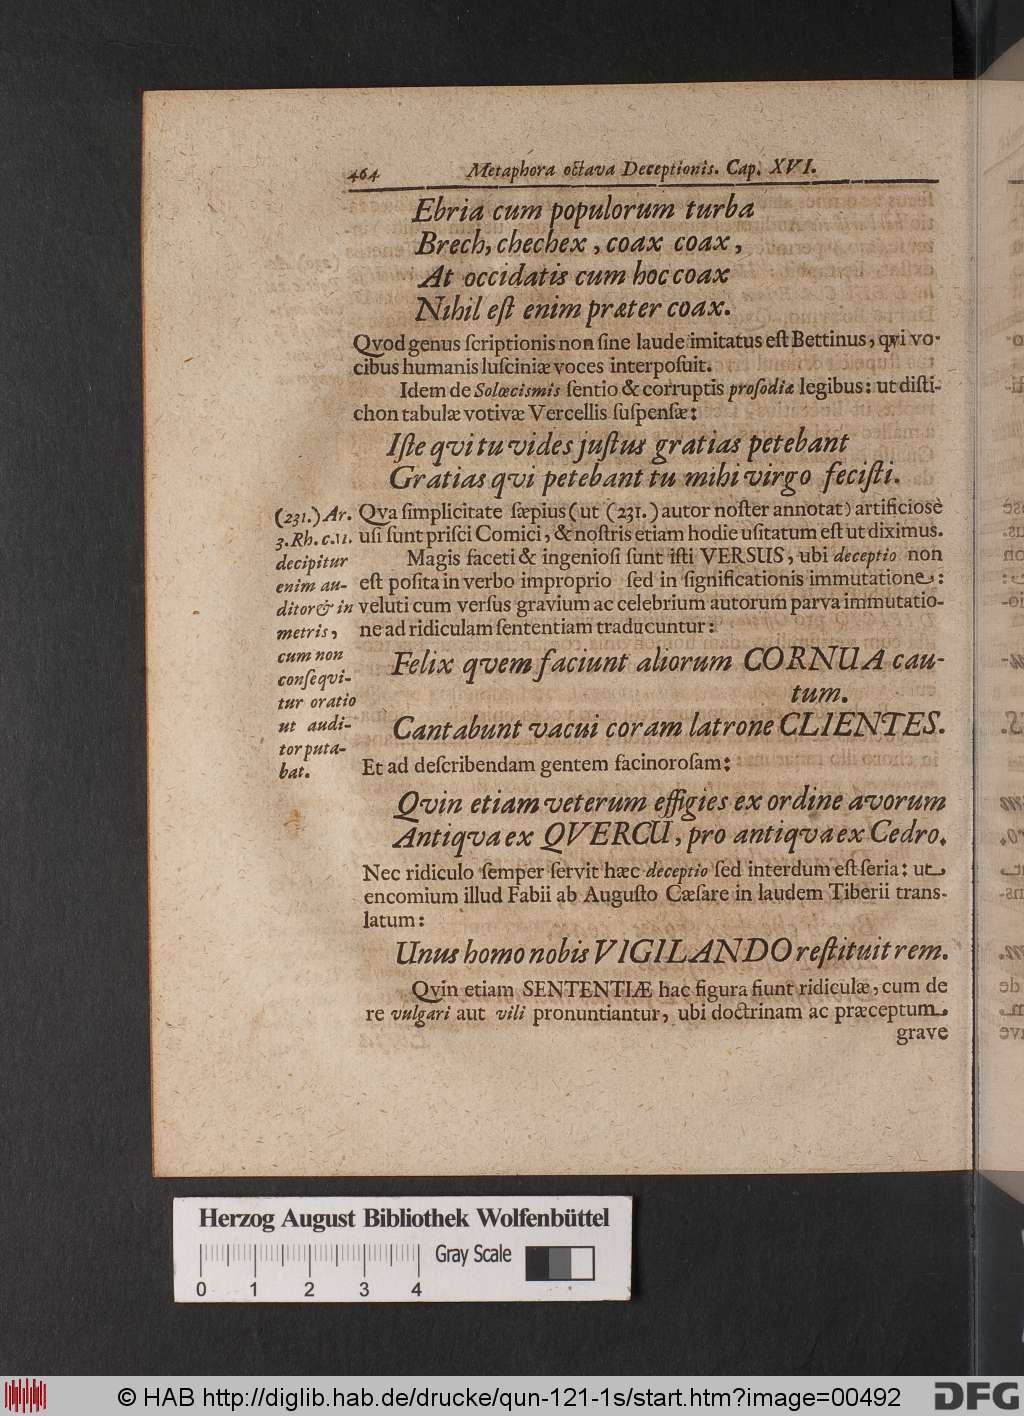 464 Metaphora octava Deceptionis. Cap. XVI.
Ebria cum populorum turba
Brech, chechex, coax coax,
At occidatis cum hoc coax
Nihil eſt enim præter coax.
Qvod genus ſcriptionis non ſine laude imitatus eſt Bettinus, qvi vo-
cibus humanis luſciniæ voces interpoſuit.
Idem de Solœciſmis ſentio & corruptis proſodiæ legibus: ut diſti-
chon tabulæ votivæ Vercellis ſuſpenſæ:
Iſte qvi tu vides juſtus gratias petebant
Gratias qvi petebant tu mihi virgo feciſti.
Qva ſimplicitate ſæpius (ut (231.) autor noſter annotat) artificiosè
uſi ſunt priſci Comici, & noſtris etiam hodie uſitatum eſt ut diximus.
Magis faceti & ingenioſi ſunt iſti VERSUS, ubi deceptio non
eſt poſita in verbo improprio ſed in ſignificationis immutatione:
veluti cum verſus gravium ac celebrium autorum parva immutatio-
ne ad ridiculam ſententiam traducuntur:
(231.) Ar.
3. Rh. c. 11.
decipitur
enim au-
ditor & in
metris,
cum non
conſeqvi-
tur oratio
ut audi-
tor puta-
bat.
Felix qvem faciunt aliorum CORNUA cau-
tum.
Cantabunt vacui coram latrone CLIENTES.
Et ad deſcribendam gentem facinoroſam:
Qvin etiam veterum effigies ex ordine avorum
Antiqva ex QVERCU, pro antiqva ex Cedro.
Nec ridiculo ſemper ſervit hæc deceptio ſed interdum eſt ſeria: ut
encomium illud Fabii ab Auguſto Cæſare in laudem Tiberii trans-
latum:
Unus homo nobis VIGILANDO reſtituit rem.
Qvin etiam SENTENTIÆ hac figura fiunt ridiculæ, cum de
re vulgari aut vili pronuntiantur, ubi doctrinam ac præceptum
grave
Herzog August Bibliothek Wolfenbüttel
Gray Scale
0 1 2 3 4
© HAB http://diglib.hab.de/drucke/qun-121-1s/start.htm?image=00492
DFG